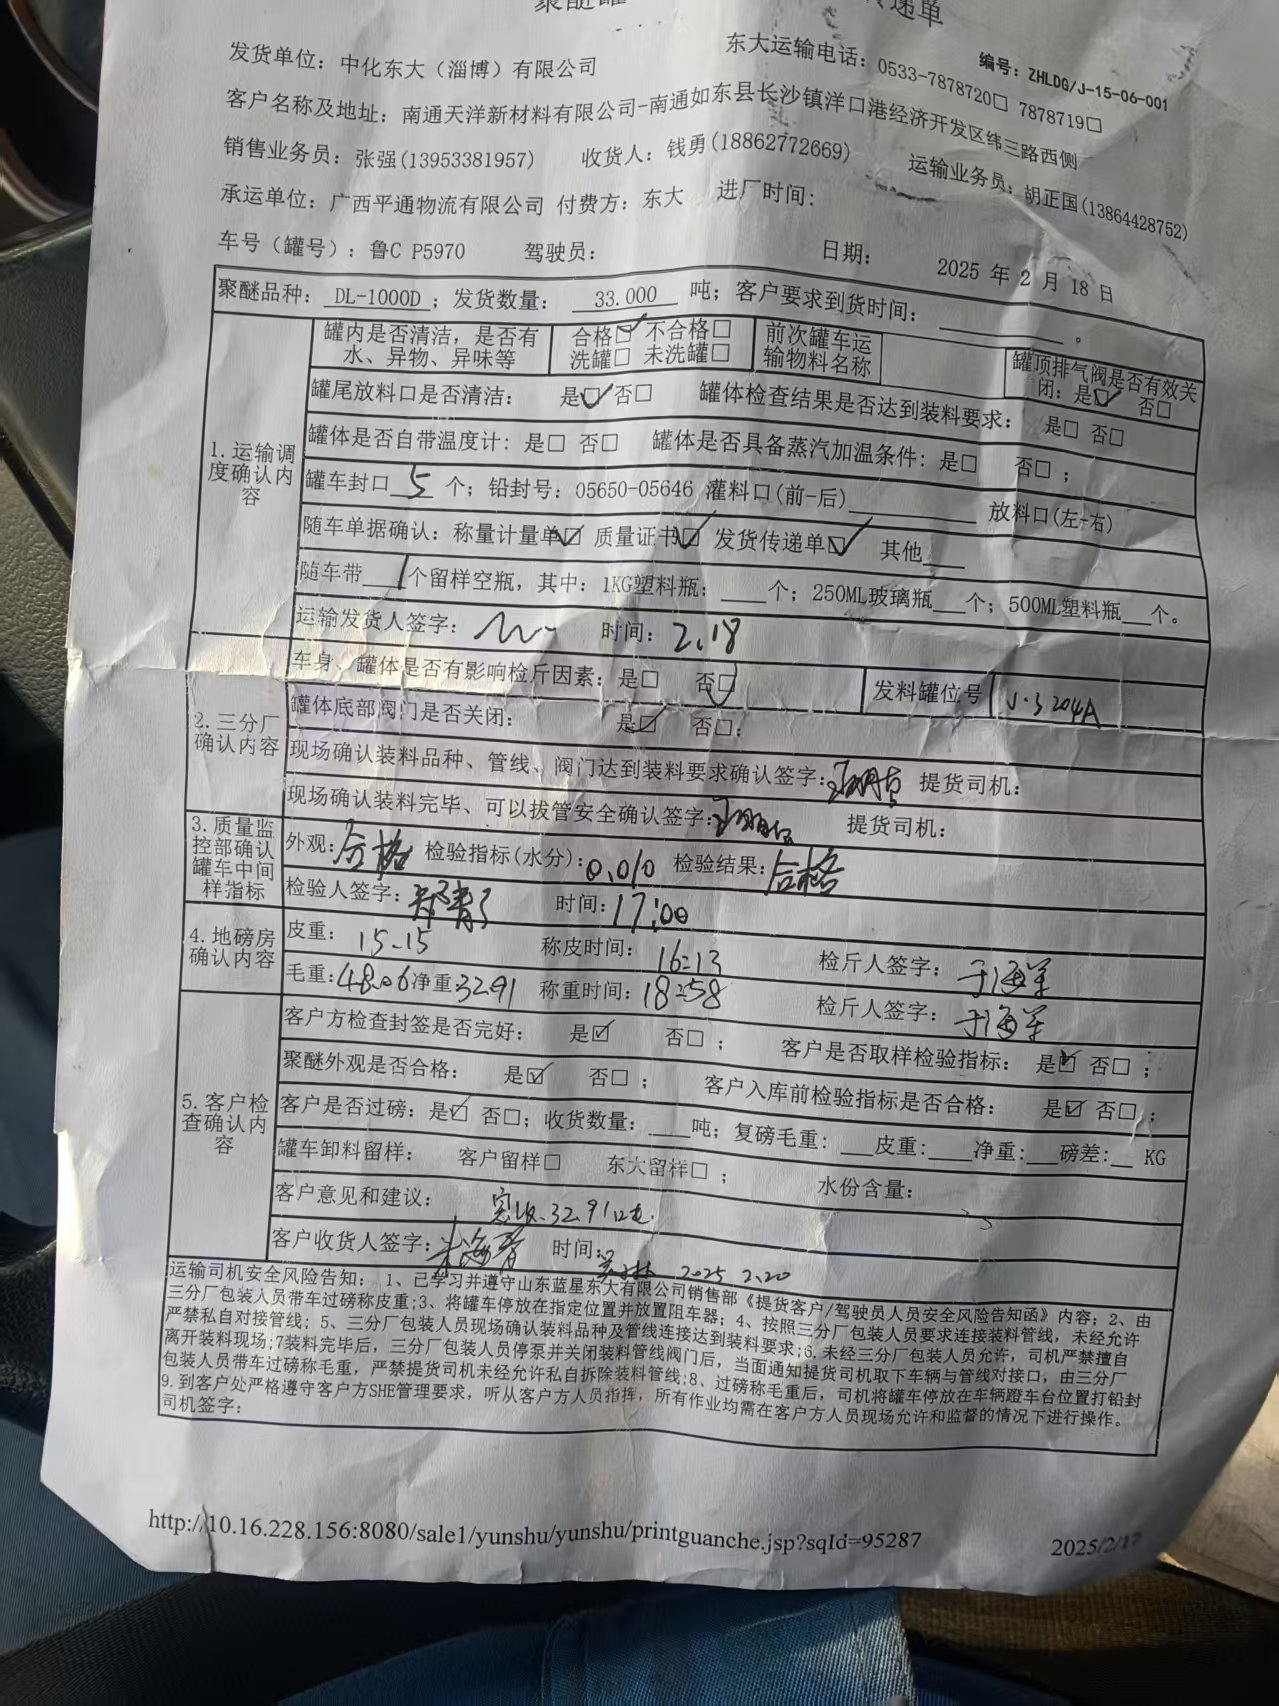 聚醚罐 递单
编号：ZHLDG/J-15-06-001
发货单位：中化东大（淄博）有限公司 东大运输电话：0533-7878720□ 7878719□
客户名称及地址：南通天洋新材料有限公司-南通如东县长沙镇洋口港经济开发区纬三路西侧
销售业务员：张强(13953381957) 收货人：钱勇(18862772669) 运输业务员：胡正国(13864428752)
承运单位：广西平通物流有限公司 付费方：东大 进厂时间：
车号（罐号）：鲁C P5970 驾驶员： 日期： 2025 年 2 月 18 日
聚醚品种： DL-1000D ；发货数量： 33.000 吨；客户要求到货时间： 。
1.运输调度确认内容
罐内是否清洁，是否有水、异物、异味等 合格☑ 不合格□ 洗罐□ 未洗罐□ 前次罐车运输物料名称 罐顶排气阀是否有效关闭：是☑ 否□
罐尾放料口是否清洁： 是☑ 否□ 罐体检查结果是否达到装料要求： 是□ 否□
罐体是否自带温度计：是□ 否□ 罐体是否具备蒸汽加温条件：是□ 否□；
罐车封口 5 个；铅封号：05650-05646 灌料口(前-后) 放料口(左-右)
随车单据确认：称量计量单☑ 质量证书☑ 发货传递单☑ 其他
随车带 1 个留样空瓶，其中：1KG塑料瓶： 个；250ML玻璃瓶 个；500ML塑料瓶 个。
运输发货人签字： 时间：2.18
2.三分厂确认内容
车身、罐体是否有影响检斤因素：是□ 否☑ 发料罐位号 J-3204A
罐体底部阀门是否关闭： 是☑ 否□；
现场确认装料品种、管线、阀门达到装料要求确认签字： 提货司机：
现场确认装料完毕、可以拔管安全确认签字： 提货司机：
3.质量监控部确认罐车中间样指标
外观：合格 检验指标(水分)：0.010 检验结果：合格
检验人签字： 时间：17:00
4.地磅房确认内容
皮重： 15.15 称皮时间： 16:13 检斤人签字：于海军
毛重：48.06 净重：32.91 称重时间：18:58 检斤人签字：于海军
5.客户检查确认内容
客户方检查封签是否完好： 是☑ 否□； 客户是否取样检验指标： 是☑ 否□；
聚醚外观是否合格： 是☑ 否□； 客户入库前检验指标是否合格： 是☑ 否□；
客户是否过磅：是☑ 否□；收货数量： 吨；复磅毛重： 皮重： 净重： 磅差： KG
罐车卸料留样： 客户留样□ 东大留样□； 水份含量：
客户意见和建议： 实收.32.91吨.
客户收货人签字： 时间： 2025 2.20
运输司机安全风险告知：1、已学习并遵守山东蓝星东大有限公司销售部《提货客户/驾驶员人员安全风险告知函》内容；2、由
三分厂包装人员带车过磅称皮重;3、将罐车停放在指定位置并放置阻车器；4、按照三分厂包装人员要求连接装料管线，未经允许
严禁私自对接管线；5、三分厂包装人员现场确认装料品种及管线连接达到装料要求;6.未经三分厂包装人员允许，司机严禁擅自
离开装料现场;7装料完毕后，三分厂包装人员停泵并关闭装料管线阀门后，当面通知提货司机取下车辆与管线对接口，由三分厂
包装人员带车过磅称毛重，严禁提货司机未经允许私自拆除装料管线;8、过磅称毛重后，司机将罐车停放在车辆蹬车台位置打铅封
9.到客户处严格遵守客户方SHE管理要求，听从客户方人员指挥，所有作业均需在客户方人员现场允许和监督的情况下进行操作。
司机签字：
http://10.16.228.156:8080/sale1/yunshu/yunshu/printguanche.jsp?sqId=95287
2025/2/17